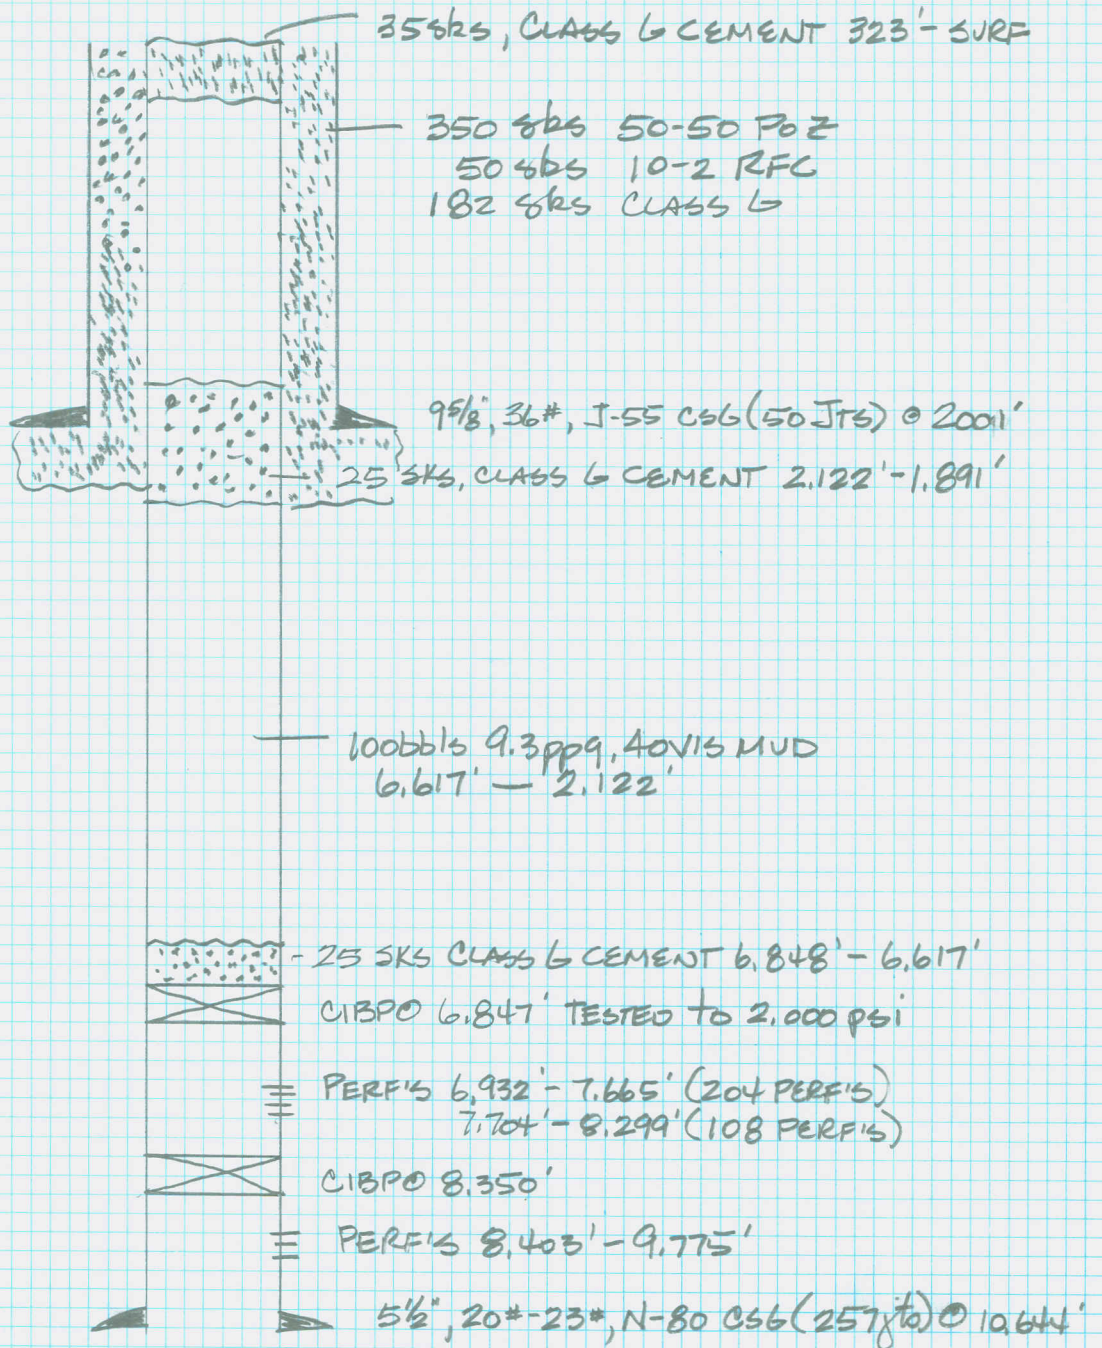 35sks, CLASS G CEMENT 323'- SURF
350 sks 50-50 POZ
50 sks 10-2 RFC
182 sks CLASS G
9 5/8", 36#, J-55 CSG (50 JTS) @ 2001'
25 SKS, CLASS G CEMENT 2,122'-1,891'
100bbls 9.3ppg, 40VIS MUD
6,617' — 2,122'
25 SKS CLASS G CEMENT 6,848' - 6,617'
CIBP@ 6,847' TESTED to 2,000 psi
PERF'S 6,932' - 7,665' (204 PERF'S)
7,704' - 8,299' (108 PERF'S)
CIBP@ 8,350'
PERF'S 8,403' - 9,775'
5 1/2", 20#-23#, N-80 CSG (257jts) @ 10,644'